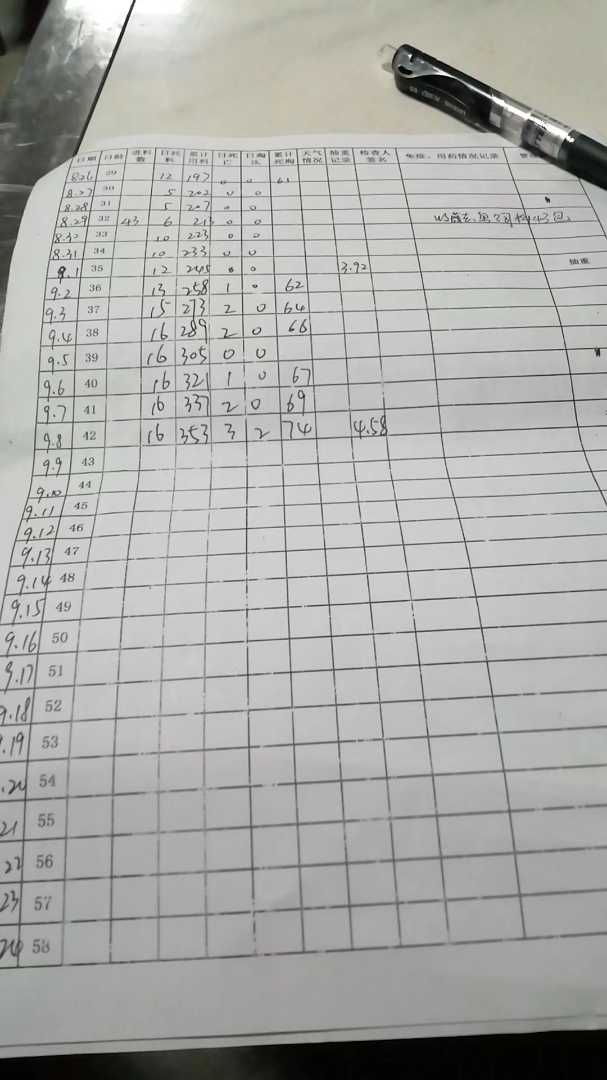 日期 日龄 进料数 日耗料 累计用料 日死亡 日淘汰 累计死淘 天气情况 抽重记录 检查人签名 免疫、用药情况记录
8.26 29 12 197 0 0 61
8.27 30 5 202 0 0
8.28 31 5 207 0 0
8.29 32 43 6 213 0 0
8.30 33 10 223 0 0
8.31 34 10 233 0 0
9.1 35 12 245 0 0 3.92 抽重
9.2 36 13 258 1 0 62
9.3 37 15 273 2 0 64
9.4 38 16 289 2 0 66
9.5 39 16 305 0 0
9.6 40 16 321 1 0 67
9.7 41 16 337 2 0 69
9.8 42 16 353 3 2 74 4.58
9.9 43
9.10 44
9.11 45
9.12 46
9.13 47
9.14 48
9.15 49
9.16 50
9.17 51
9.18 52
9.19 53
.20 54
21 55
22 56
23 57
24 58